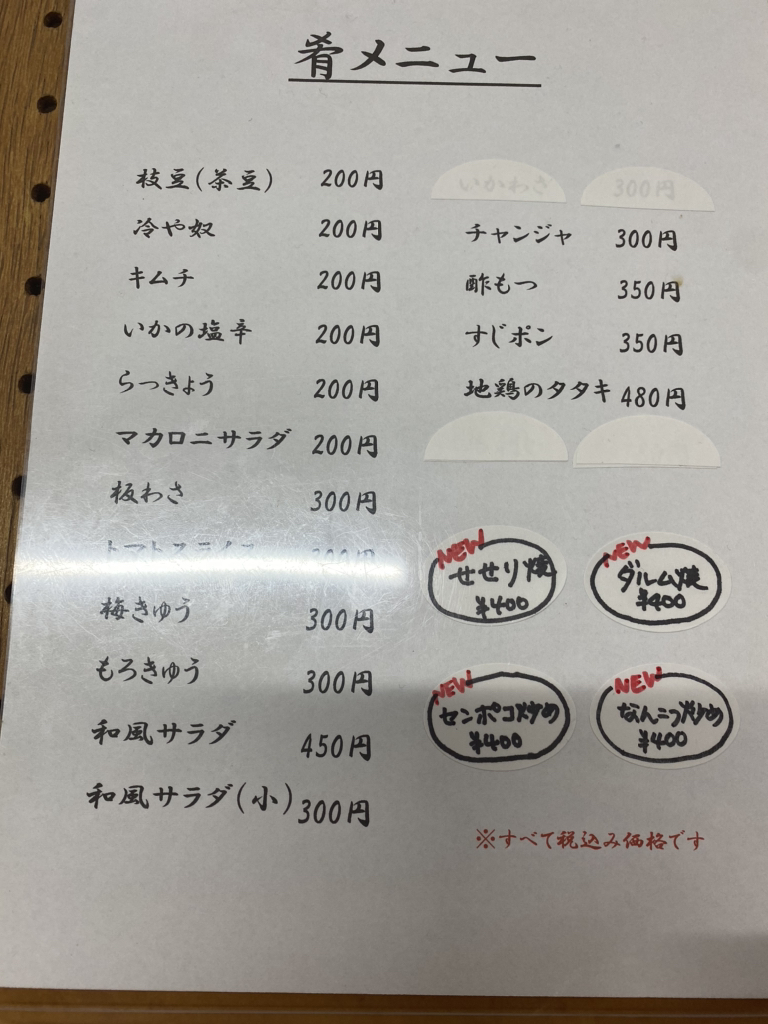 肴メニュー
枝豆(茶豆) 200円
冷や奴 200円
キムチ 200円
いかの塩辛 200円
らっきょう 200円
マカロニサラダ 200円
板わさ 300円
トマトスライス 300円
梅きゅう 300円
もろきゅう 300円
和風サラダ 450円
和風サラダ(小) 300円
いかわさ 300円
チャンジャ 300円
酢もつ 350円
すじポン 350円
地鶏のタタキ 480円
NEW
せせり焼
¥400
NEW
ダルム焼
¥400
NEW
センポコ炒め
¥400
NEW
なんこつ炒め
¥400
※すべて税込み価格です